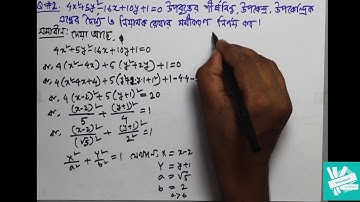 Q#2. 4x²+5y²-16x+10y+1=0 উপবৃত্তের শীর্ষবিন্দু, উপকেন্দ্র, উপকেন্দ্রিক
লম্বের দৈর্ঘ্য ও নিয়ামক রেখার সমীকরণ নির্ণয় কর।
সমাধান: দেওয়া আছে,
4x²+5y²-16x+10y+1=0
বা, 4(x²-4x)+5(y²+2y)+1=0
বা, 4(x²-4x+4)+5(y²+2.y.1+1²)+1-4.4-
বা, 4(x-2)²+5(y+1)²=20
বা, (x-2)²/5 + (y+1)²/4 = 1
বা, (x-2)²/(√5)² + (y+1)²/2² = 1
x²/a² + y²/b² = 1 যেখানে, X = x-2
Y = y+1
a = √5
b = 2
a>b